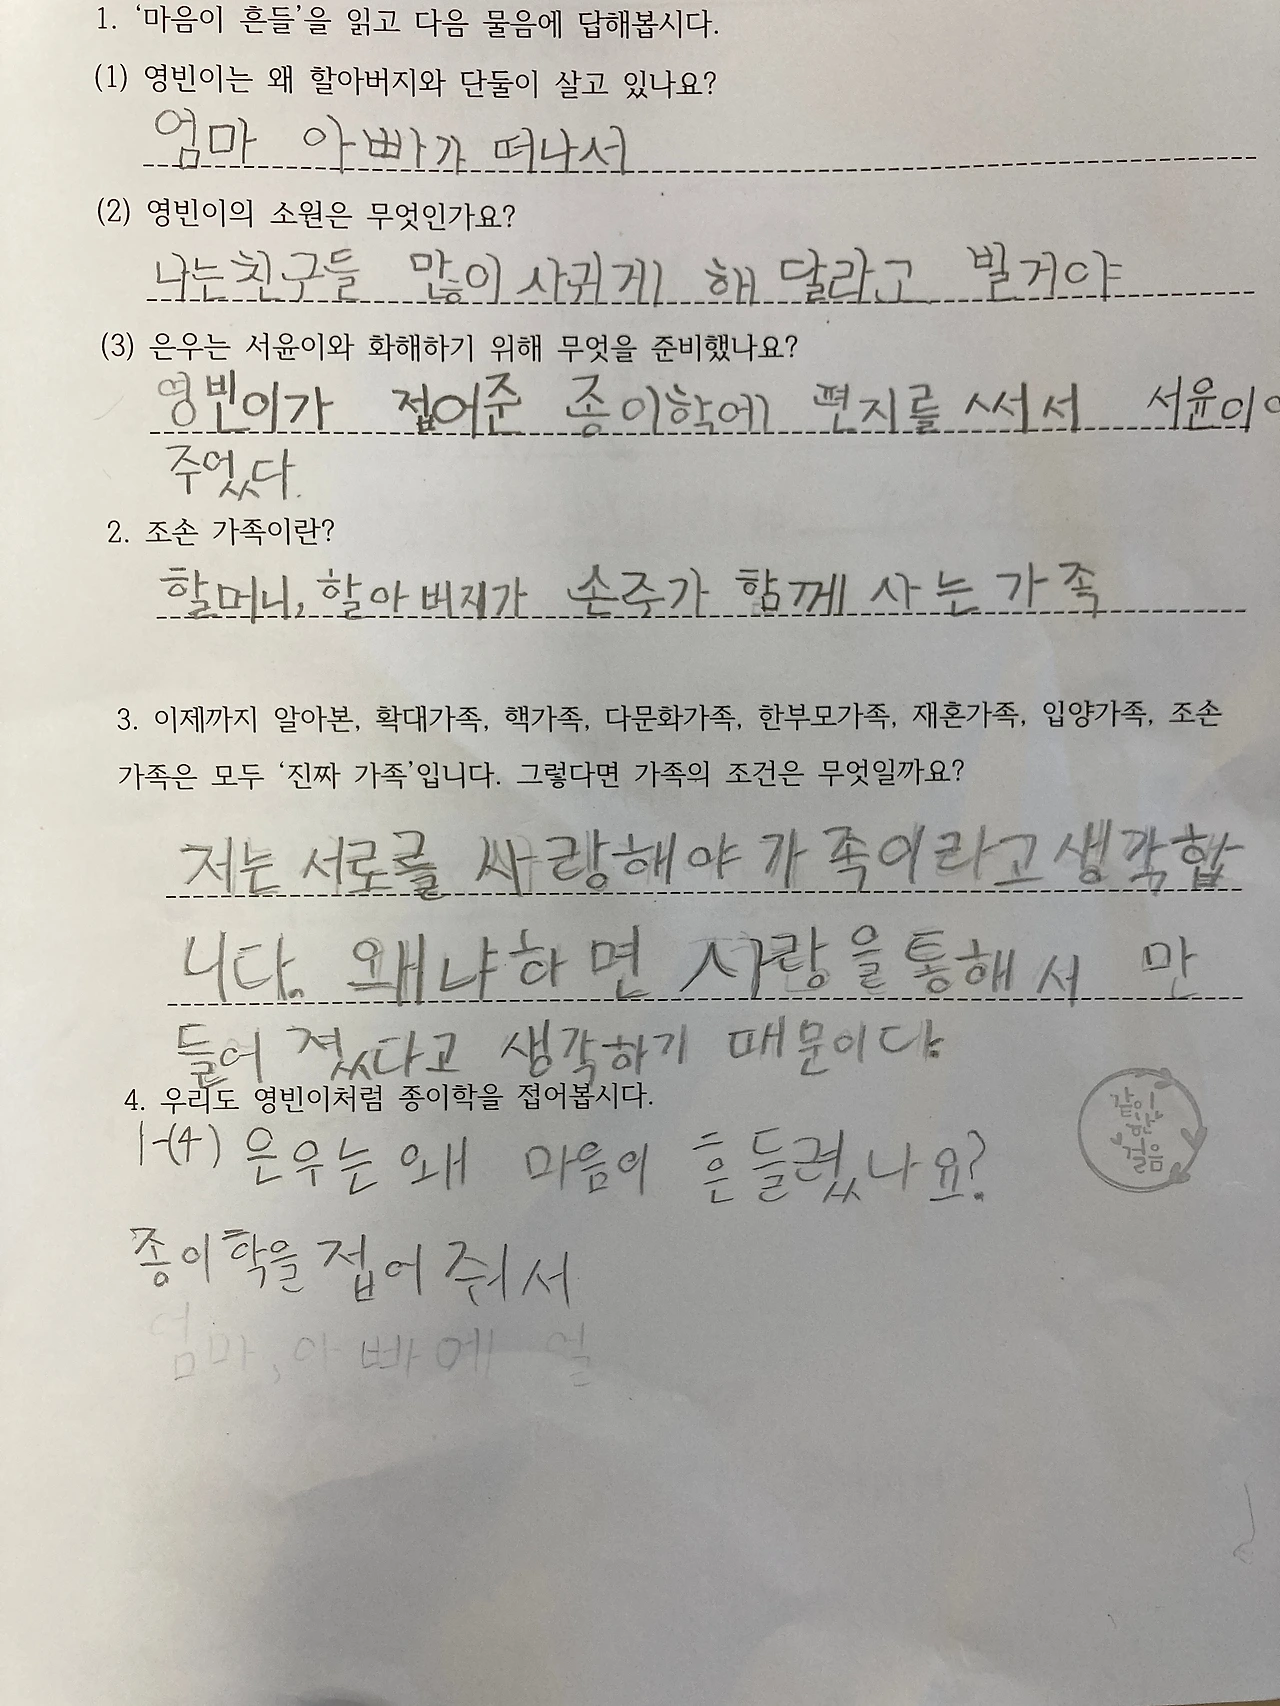 1. ‘마음이 흔들’을 읽고 다음 물음에 답해봅시다.
(1) 영빈이는 왜 할아버지와 단둘이 살고 있나요?
엄마 아빠가 떠나서
(2) 영빈이의 소원은 무엇인가요?
나는친구들 많이 사귀게 해 달라고 빌거야
(3) 은우는 서윤이와 화해하기 위해 무엇을 준비했나요?
영빈이가 접어준 종이학에 편지를 써서 서윤이
주었다.
2. 조손 가족이란?
할머니, 할아버지가 손주가 함께 사는 가족
3. 이제까지 알아본, 확대가족, 핵가족, 다문화가족, 한부모가족, 재혼가족, 입양가족, 조손
가족은 모두 ‘진짜 가족’입니다. 그렇다면 가족의 조건은 무엇일까요?
저는 서로를 싸랑해야 가족이라고 생각합
니다. 왜냐하면 사랑을 통해서 만
들어 졌다고 생각하기 때문이다.
4. 우리도 영빈이처럼 종이학을 접어봅시다.
같이
한
걸음
1-(4) 은우는 왜 마음이 흔들렸나요?
종이학을 접어 줘서
엄마, 아빠에